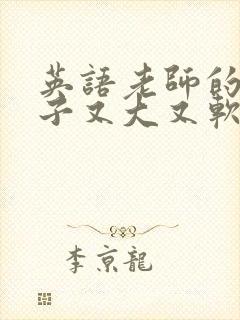 英語老師的
子又大又軟
李京龍